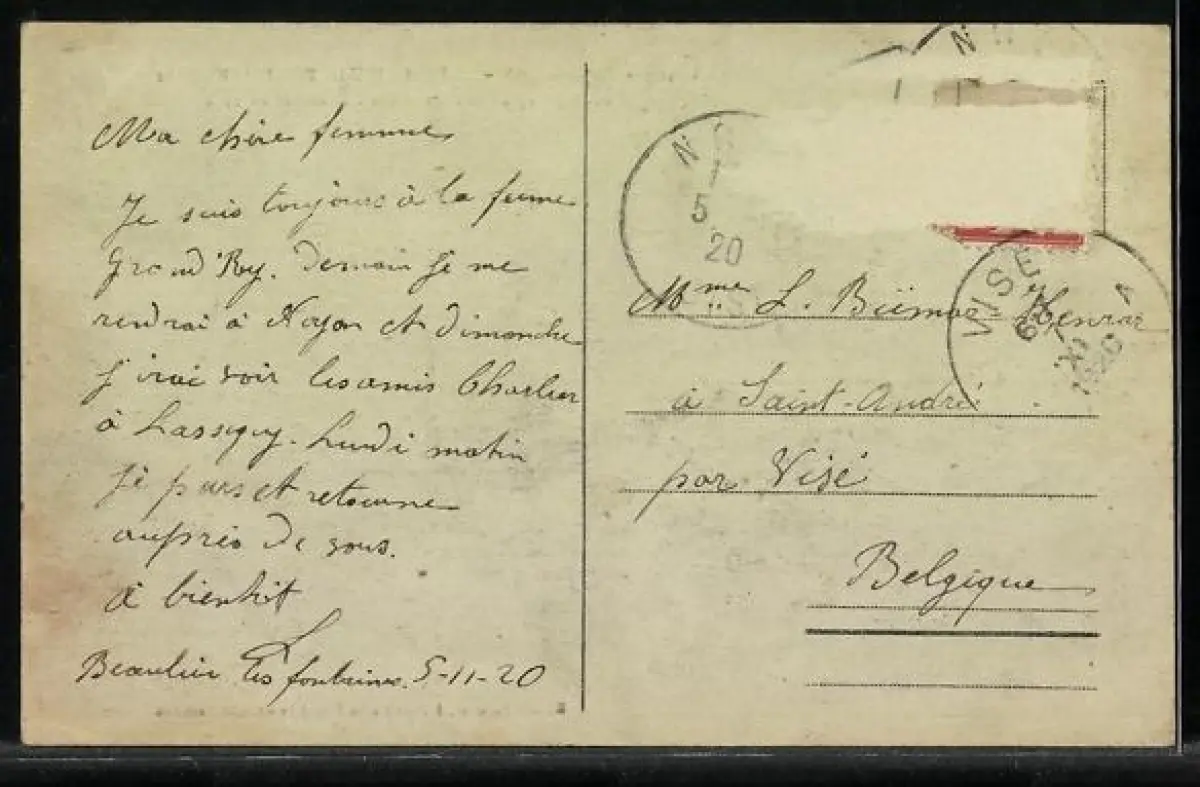 Ma chère femme
Je suis toujours à la ferme
Grand'Ry. Demain je me
rendrai à Noyon et dimanche
j'irai voir les amis Charlier
à Lassigny. Lundi matin
je pars et retourne
auprès de vous.
à bientôt
L
Beaulieu les fontaines. 5-11-20
N
5
20
N
Mme L. Henrar
à Saint-André
par Visé
Belgique
VISE
XI
1920